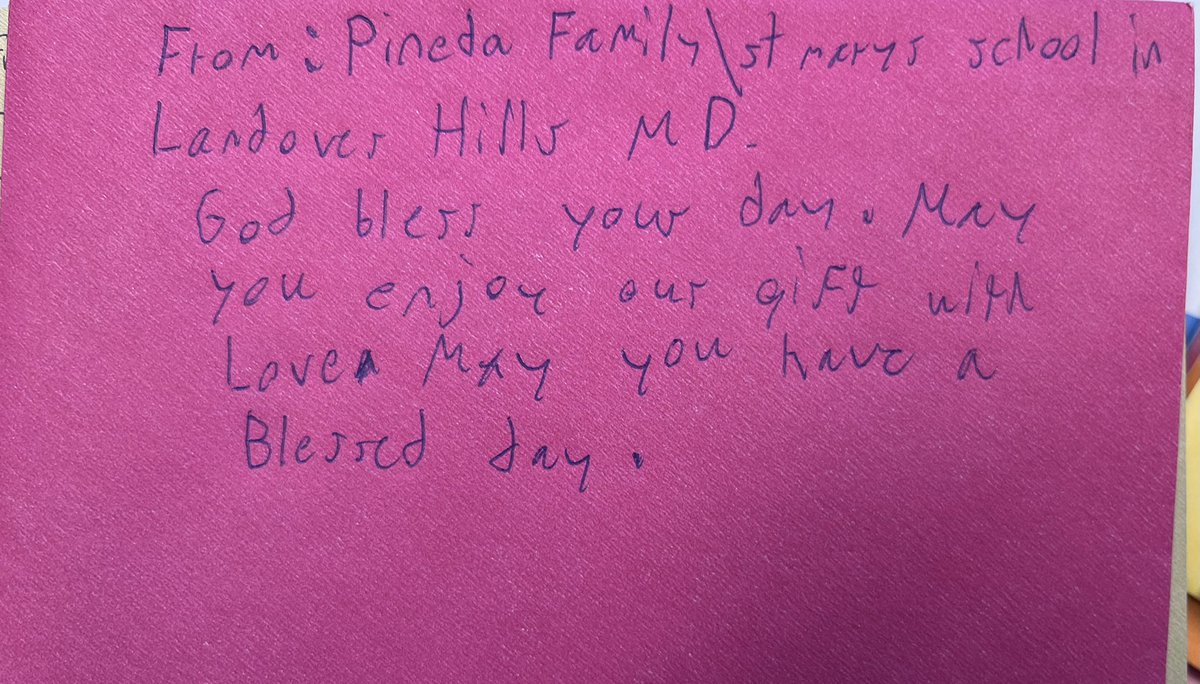 From: Pineda Family\st marys school in
Landover Hills MD.
God bless your day. May
you enjoy our gift with
Love. May you have a
Blessed day.